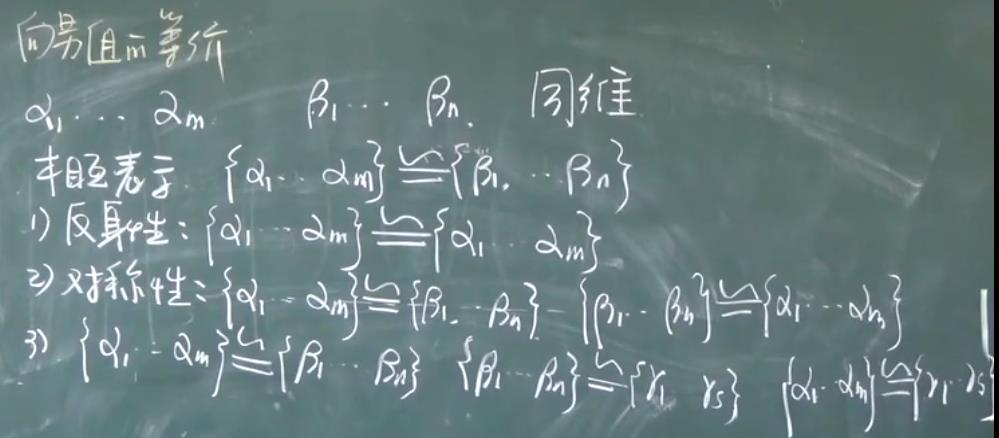 向量组的等价
α₁, ··· αm   β₁ ··· βn.   同维
相互表示   {α₁ ·· αm} ≌ {β₁, ··· βn}
1) 反身性: {α₁ ··· αm} ≌ {α₁ ··· αm}
2) 对称性: {α₁ ·· αm} ≌ {β₁. ·· βn}   {β₁ ·· βn} ≌ {α₁ ··· αm}
3) {α₁ ·· αm} ≌ {β₁ ··· βn}   {β₁ ·· βn} ≌ {γ₁   γs}   {α₁ ·· αm} ≌ {γ₁ ·· γs}